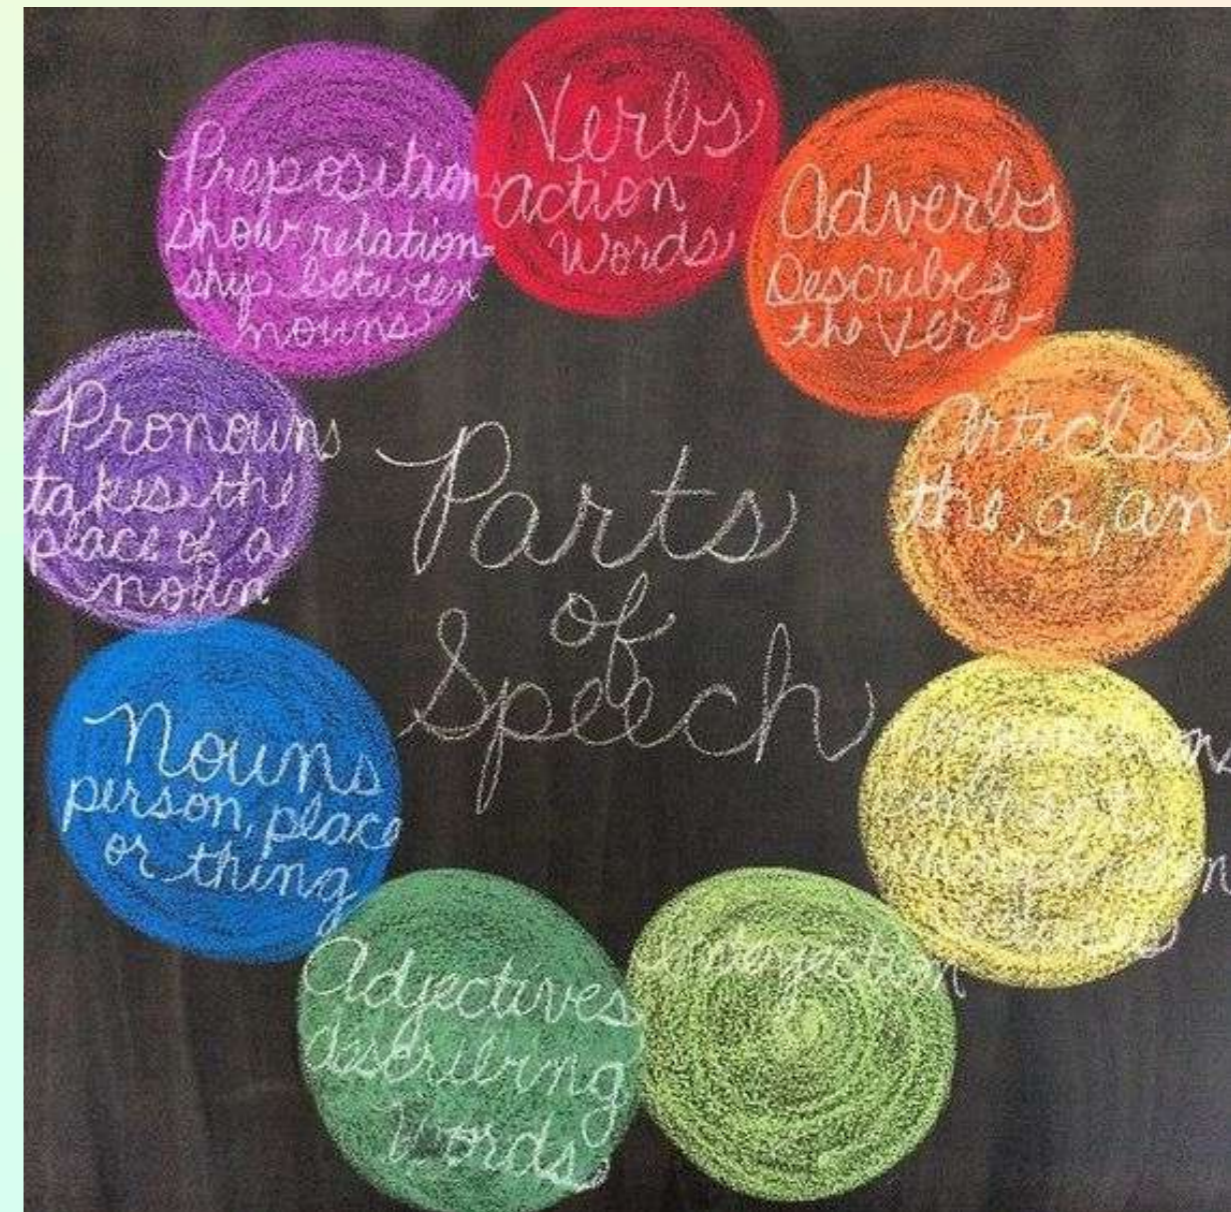 Parts
of
Speech
Verbs
action
words
Adverbs
Describes
the verb
Articles
the, a, an
Interjection
Adjectives
describing
Words
Nouns
person, place
or thing
Pronouns
takes the
place of a
noun
Prepositions
show relation
ship between
nouns